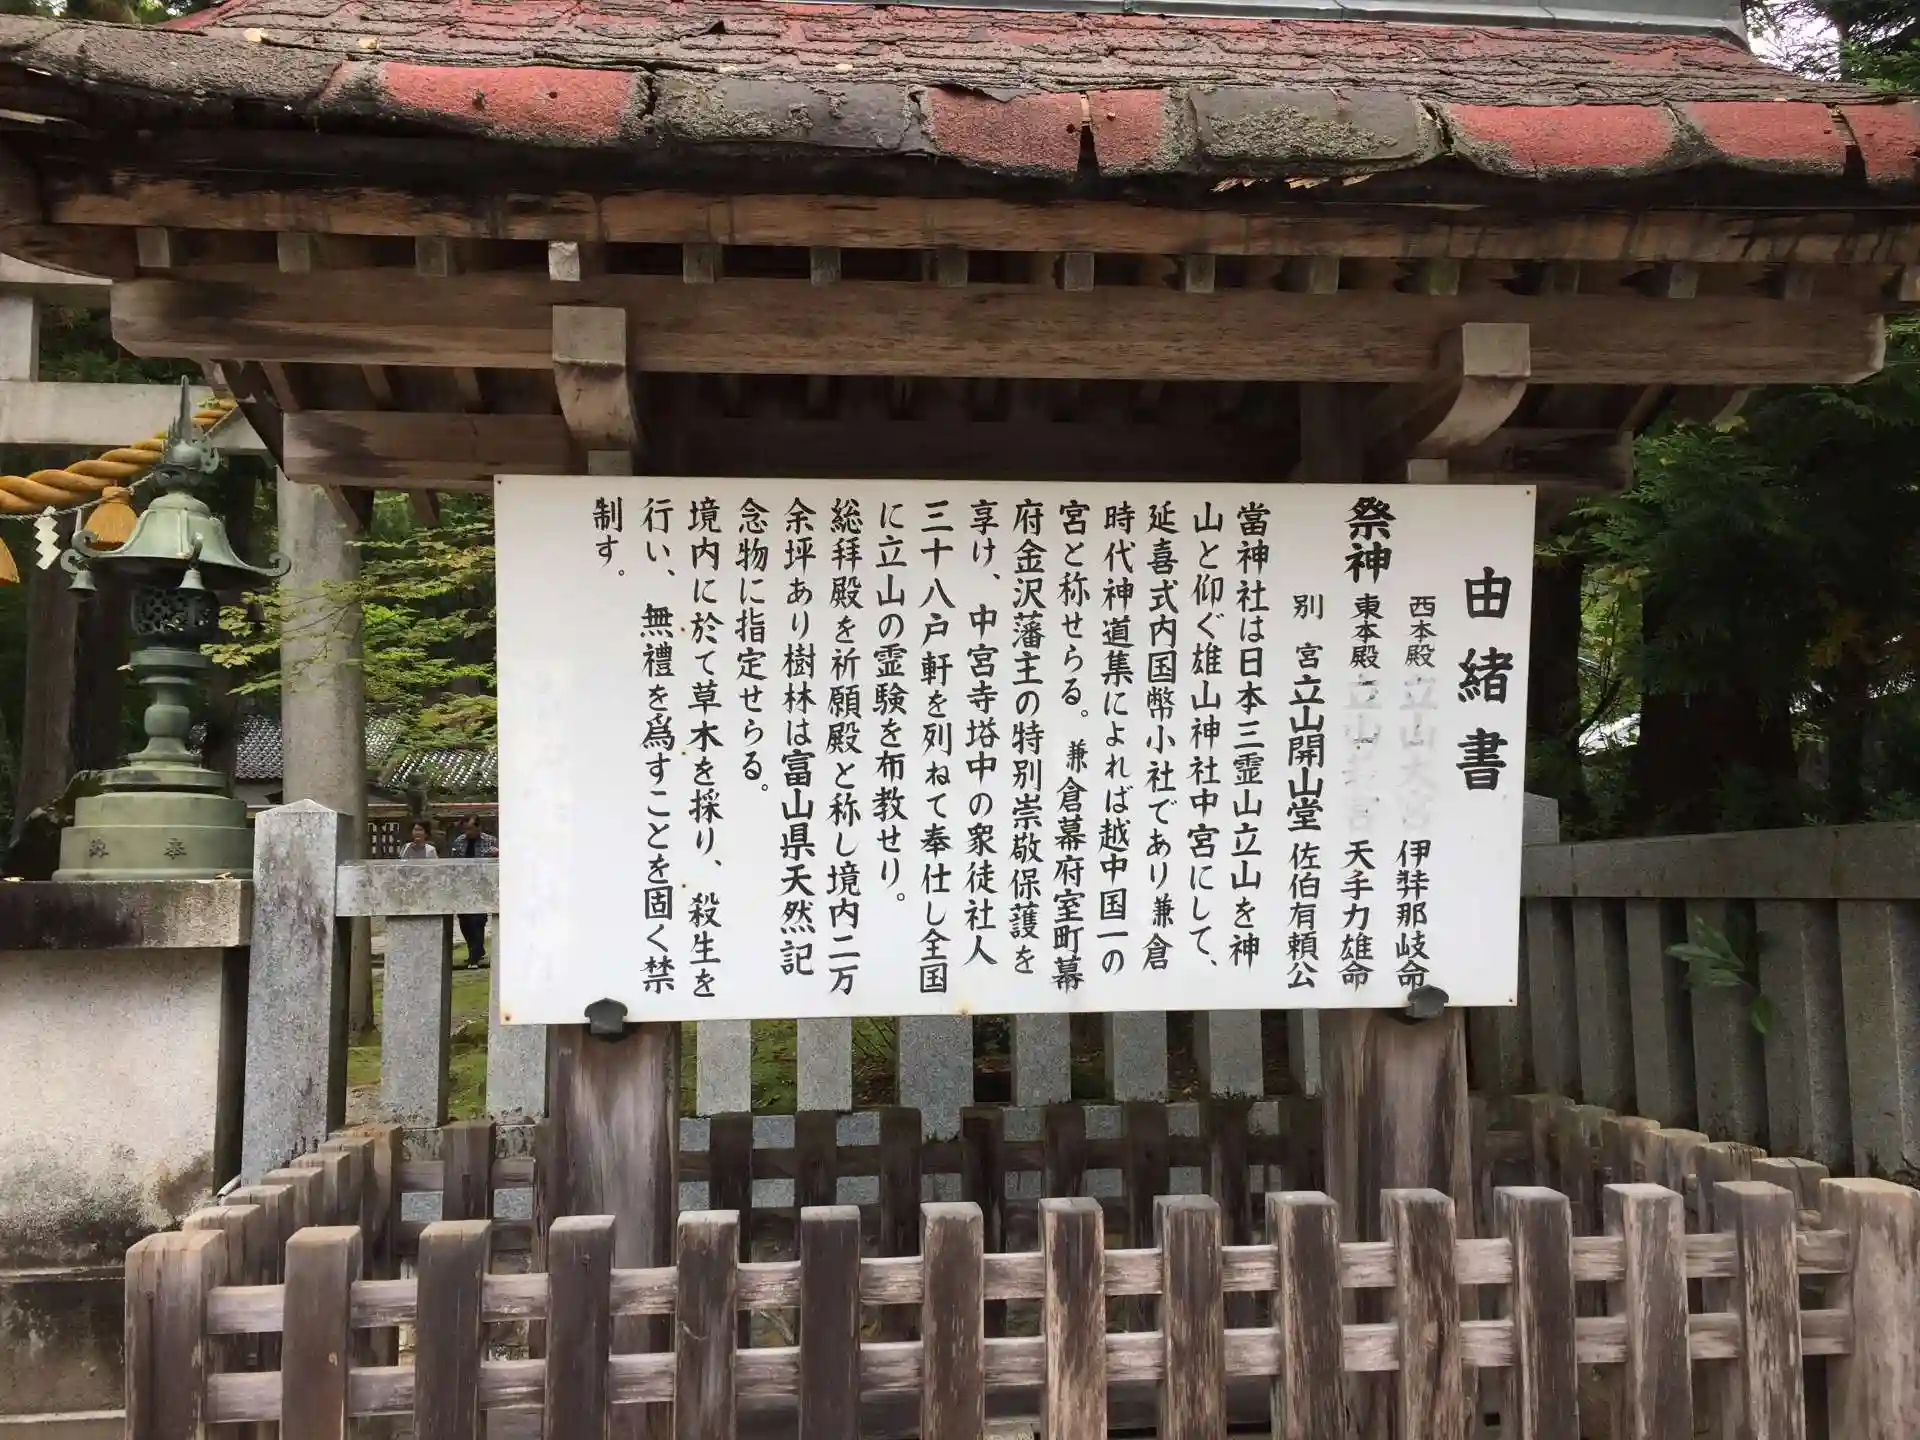 由緒書
西本殿 立山大宮 伊弉那岐命
祭神 東本殿 立山若宮 天手力雄命
別宮 立山開山堂 佐伯有頼公
當神社は日本三霊山立山を神
山と仰ぐ雄山神社中宮にして、
延喜式内国幣小社であり兼倉
時代神道集によれば越中国一の
宮と称せらる。兼倉幕府室町幕
府金沢藩主の特別崇敬保護を
享け、中宮寺塔中の衆徒社人
三十八戸軒を列ねて奉仕し全国
に立山の霊験を布教せり。
総拝殿を祈願殿と称し境内二万
余坪あり樹林は富山県天然記
念物に指定せらる。
境内に於て草木を採り、殺生を
行い、無禮を爲すことを固く禁
制す。
奉